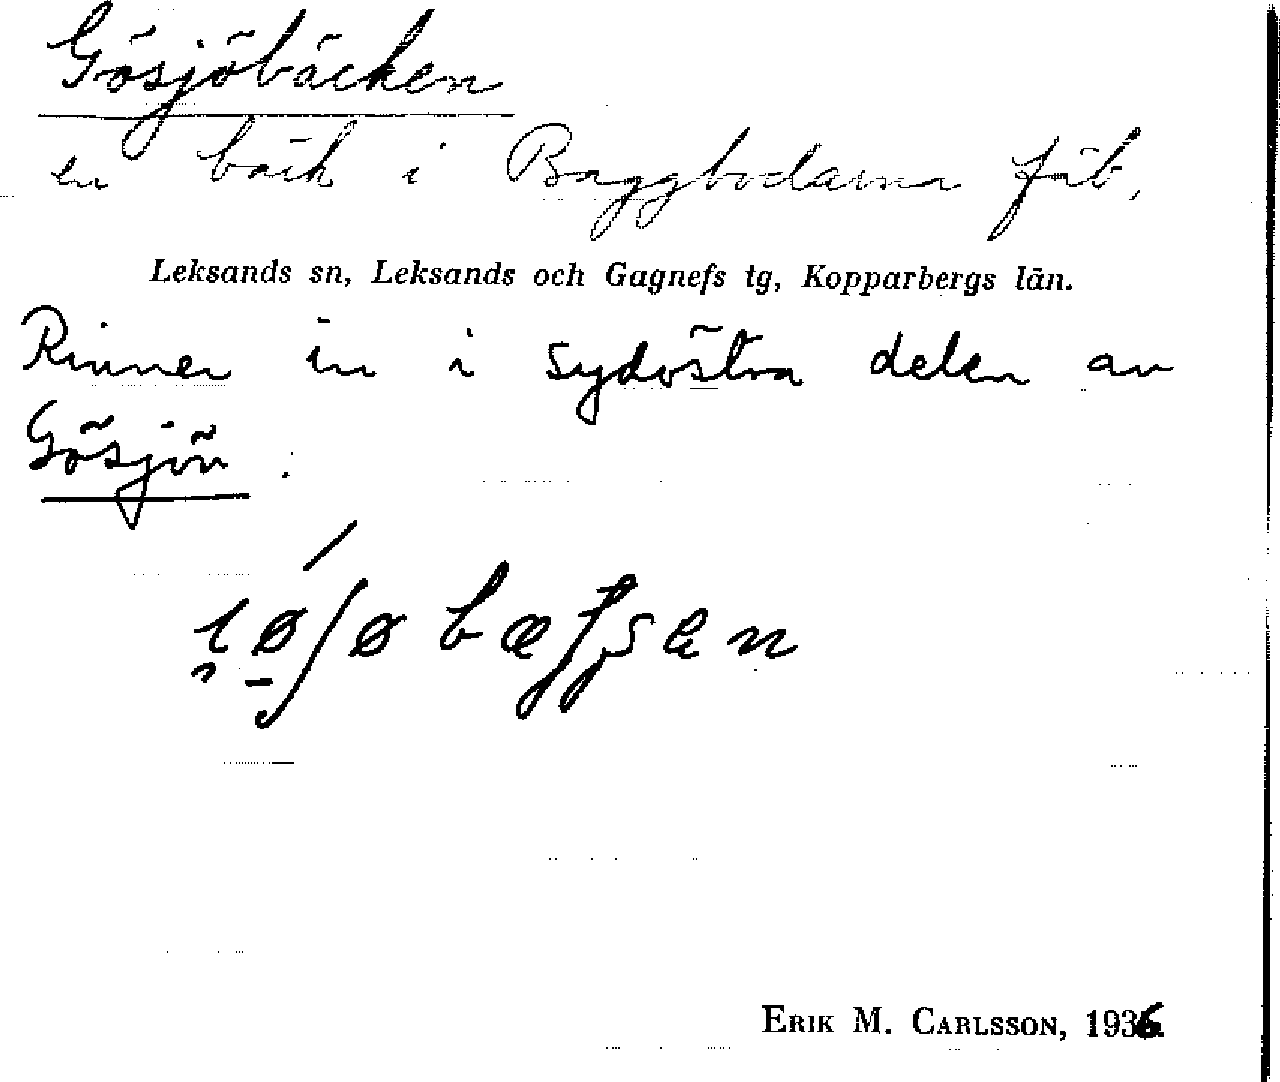 Gösjöbäcken
en bäck i Baggbodarna fäb.
Leksands sn, Leksands och Gagnefs tg, Kopparbergs län.
Rinner in i sydöstra delen av
Gösjön.
ERIK M. CARLSSON, 1936